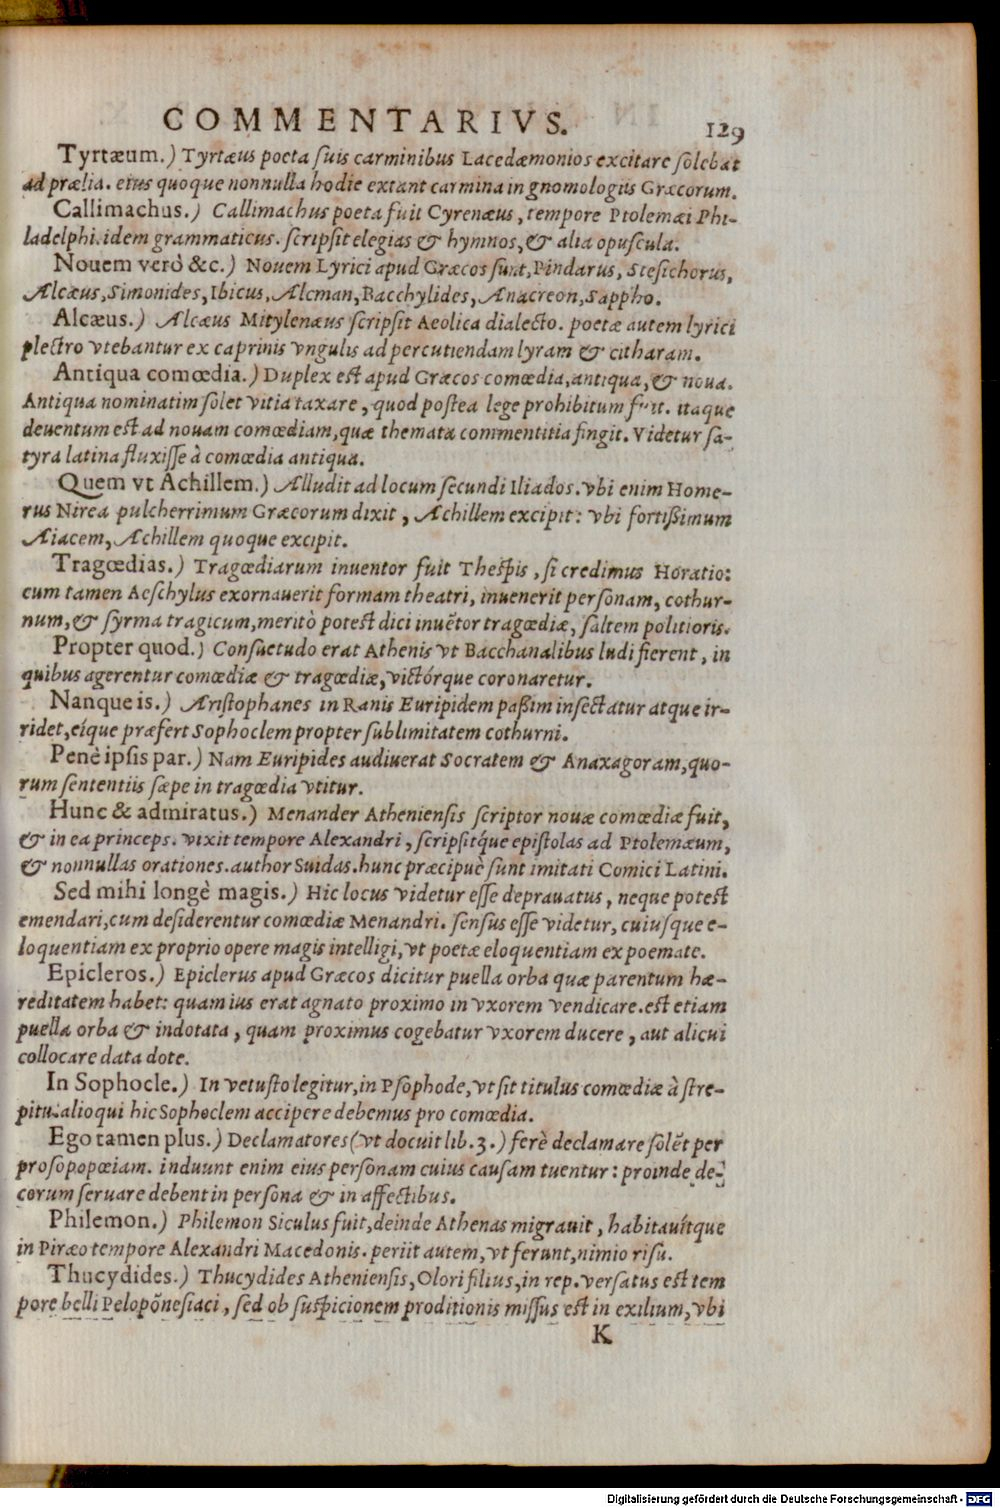 COMMENTARIVS. 129
Tyrtæum.) Tyrtæus poeta suis carminibus Lacedæmonios excitare solebat
ad prælia. eius quoque nonnulla hodie extant carmina in gnomologiis Græcorum.
Callimachus.) Callimachus poeta fuit Cyrenæus, tempore Ptolemæi Phi-
ladelphi. idem grammaticus. scripsit elegias & hymnos, & alia opuscula.
Nouem verò &c.) Nouem Lyrici apud Græcos sunt, Pindarus, Stesichorus,
Alcæus, Simonides, Ibicus, Alcman, Bacchylides, Anacreon, Sappho.
Alcæus.) Alcæus Mitylenæus scripsit Aeolica dialecto. poetæ autem lyrici
plectro vtebantur ex caprinis vngulis ad percutiendam lyram & citharam.
Antiqua comœdia.) Duplex est apud Græcos comœdia, antiqua, & noua.
Antiqua nominatim solet vitia taxare, quod postea lege prohibitum fuit. itaque
deuentum est ad nouam comœdiam, quæ themata commentitia fingit. Videtur sa-
tyra latina fluxisse à comœdia antiqua.
Quem vt Achillem.) Alludit ad locum secundi Iliados. vbi enim Home-
rus Nirea pulcherrimum Græcorum dixit, Achillem excipit: vbi fortißimum
Aiacem, Achillem quoque excipit.
Tragœdias.) Tragœdiarum inuentor fuit Thespis, si credimus Horatio:
cum tamen Aeschylus exornauerit formam theatri, inuenerit personam, cothur-
num, & syrma tragicum, meritò potest dici inuẽtor tragœdiæ, saltem politioris.
Propter quod.) Consuetudo erat Athenis vt Bacchanalibus ludi fierent, in
quibus agerentur comœdiæ & tragœdiæ, victórque coronaretur.
Nanque is.) Aristophanes in Ranis Euripidem paßim insectatur atque ir-
ridet, eíque præfert Sophoclem propter sublimitatem cothurni.
Penè ipsis par.) Nam Euripides audiuerat Socratem & Anaxagoram, quo-
rum sententiis sæpe in tragœdia vtitur.
Hunc & admiratus.) Menander Atheniensis scriptor nouæ comœdiæ fuit,
& in ea princeps. vixit tempore Alexandri, scripsitq́ue epistolas ad Ptolemæum,
& nonnullas orationes. author Suidas. hunc præcipuè sunt imitati Comici Latini.
Sed mihi longè magis.) Hic locus videtur esse deprauatus, neque potest
emendari, cum desiderentur comœdiæ Menandri. sensus esse videtur, cuiusque e-
loquentiam ex proprio opere magis intelligi, vt poetæ eloquentiam ex poemate.
Epicleros.) Epiclerus apud Græcos dicitur puella orba quæ parentum hæ-
reditatem habet: quam ius erat agnato proximo in vxorem vendicare. est etiam
puella orba & indotata, quam proximus cogebatur vxorem ducere, aut alicui
collocare data dote.
In Sophocle.) In vetusto legitur, in Psophode, vt sit titulus comœdiæ à stre-
pitu. alioqui hic Sophoclem accipere debemus pro comœdia.
Ego tamen plus.) Declamatores (vt docuit lib. 3.) ferè declamare solẽt per
prosopopœiam. induunt enim eius personam cuius causam tuentur: proinde de-
corum seruare debent in persona & in affectibus.
Philemon.) Philemon Siculus fuit, deinde Athenas migrauit, habitauítque
in Piræo tempore Alexandri Macedonis. periit autem, vt ferunt, nimio risu.
Thucydides.) Thucydides Atheniensis, Olori filius, in rep. versatus est tem
pore belli Pelopõnesiaci, sed ob suspicionem proditionis missus est in exilium, vbi
K
Digitalisierung gefördert durch die Deutsche Forschungsgemeinschaft - DFG